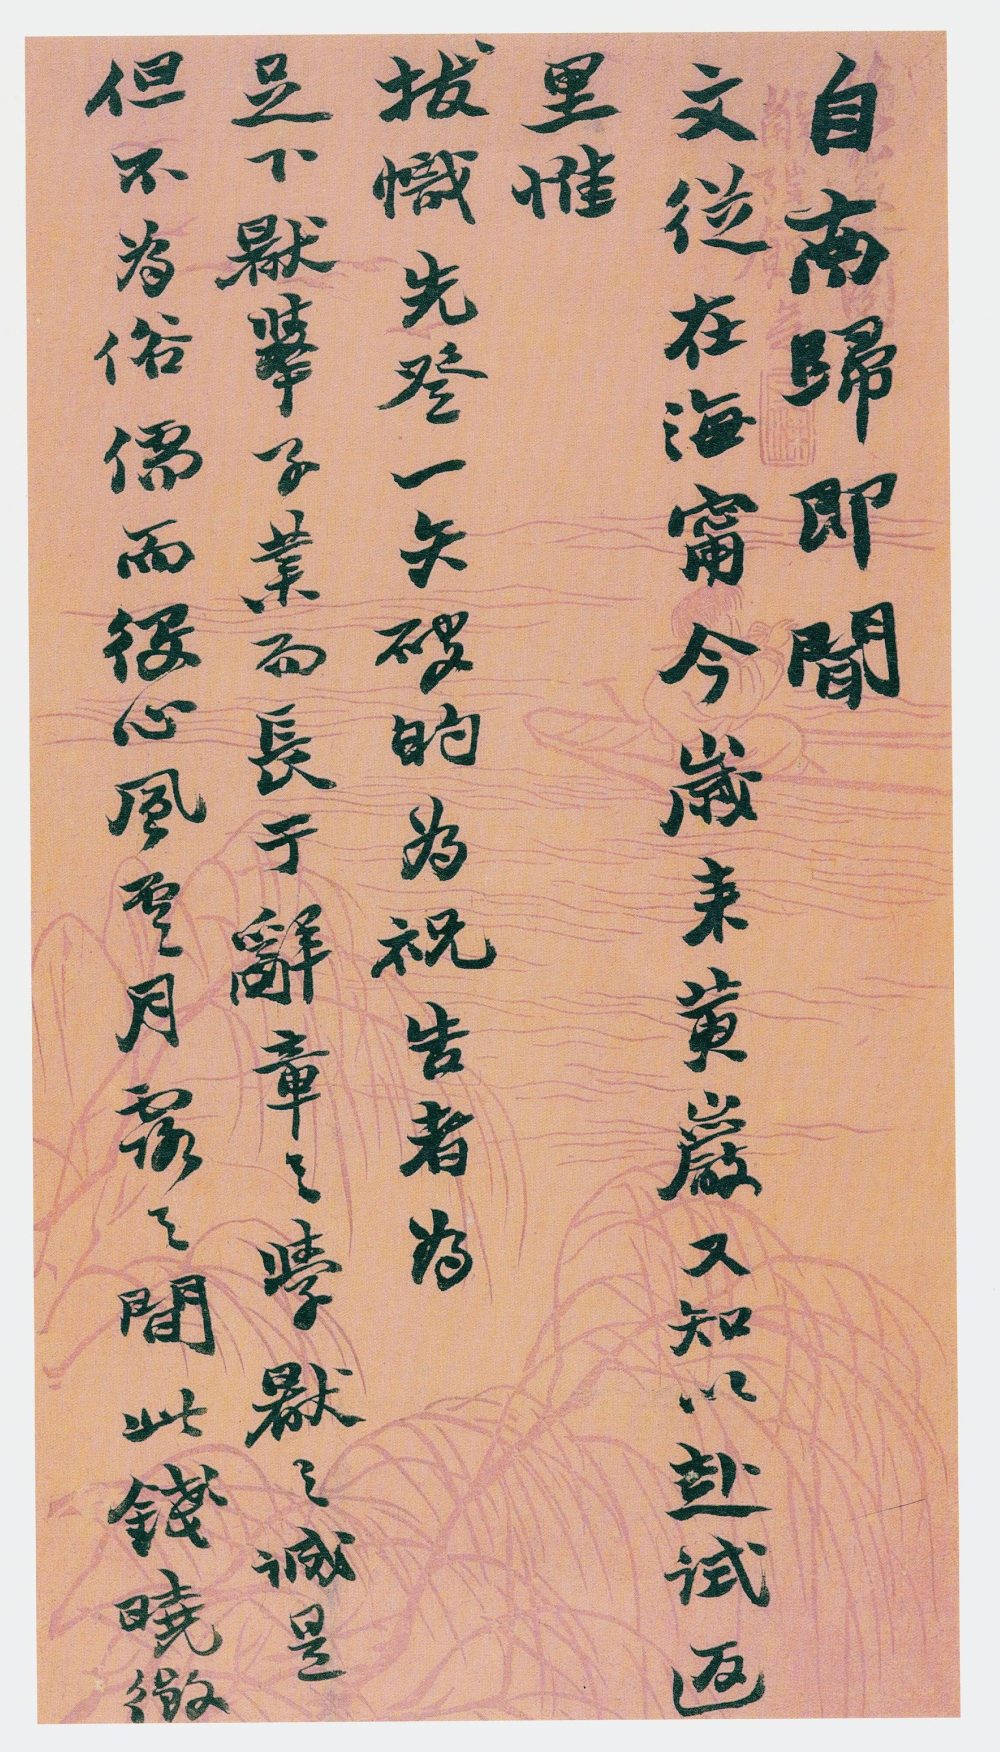 自南歸即聞
文從在海甯今歲来黃巖又知以赴試返
里惟
拔幟先登一矢破的為祝告者為
足下厭舉子業而長于辭章之學厭之誠是
但不為俗儒而役心風雲月露之間此錢曉徵